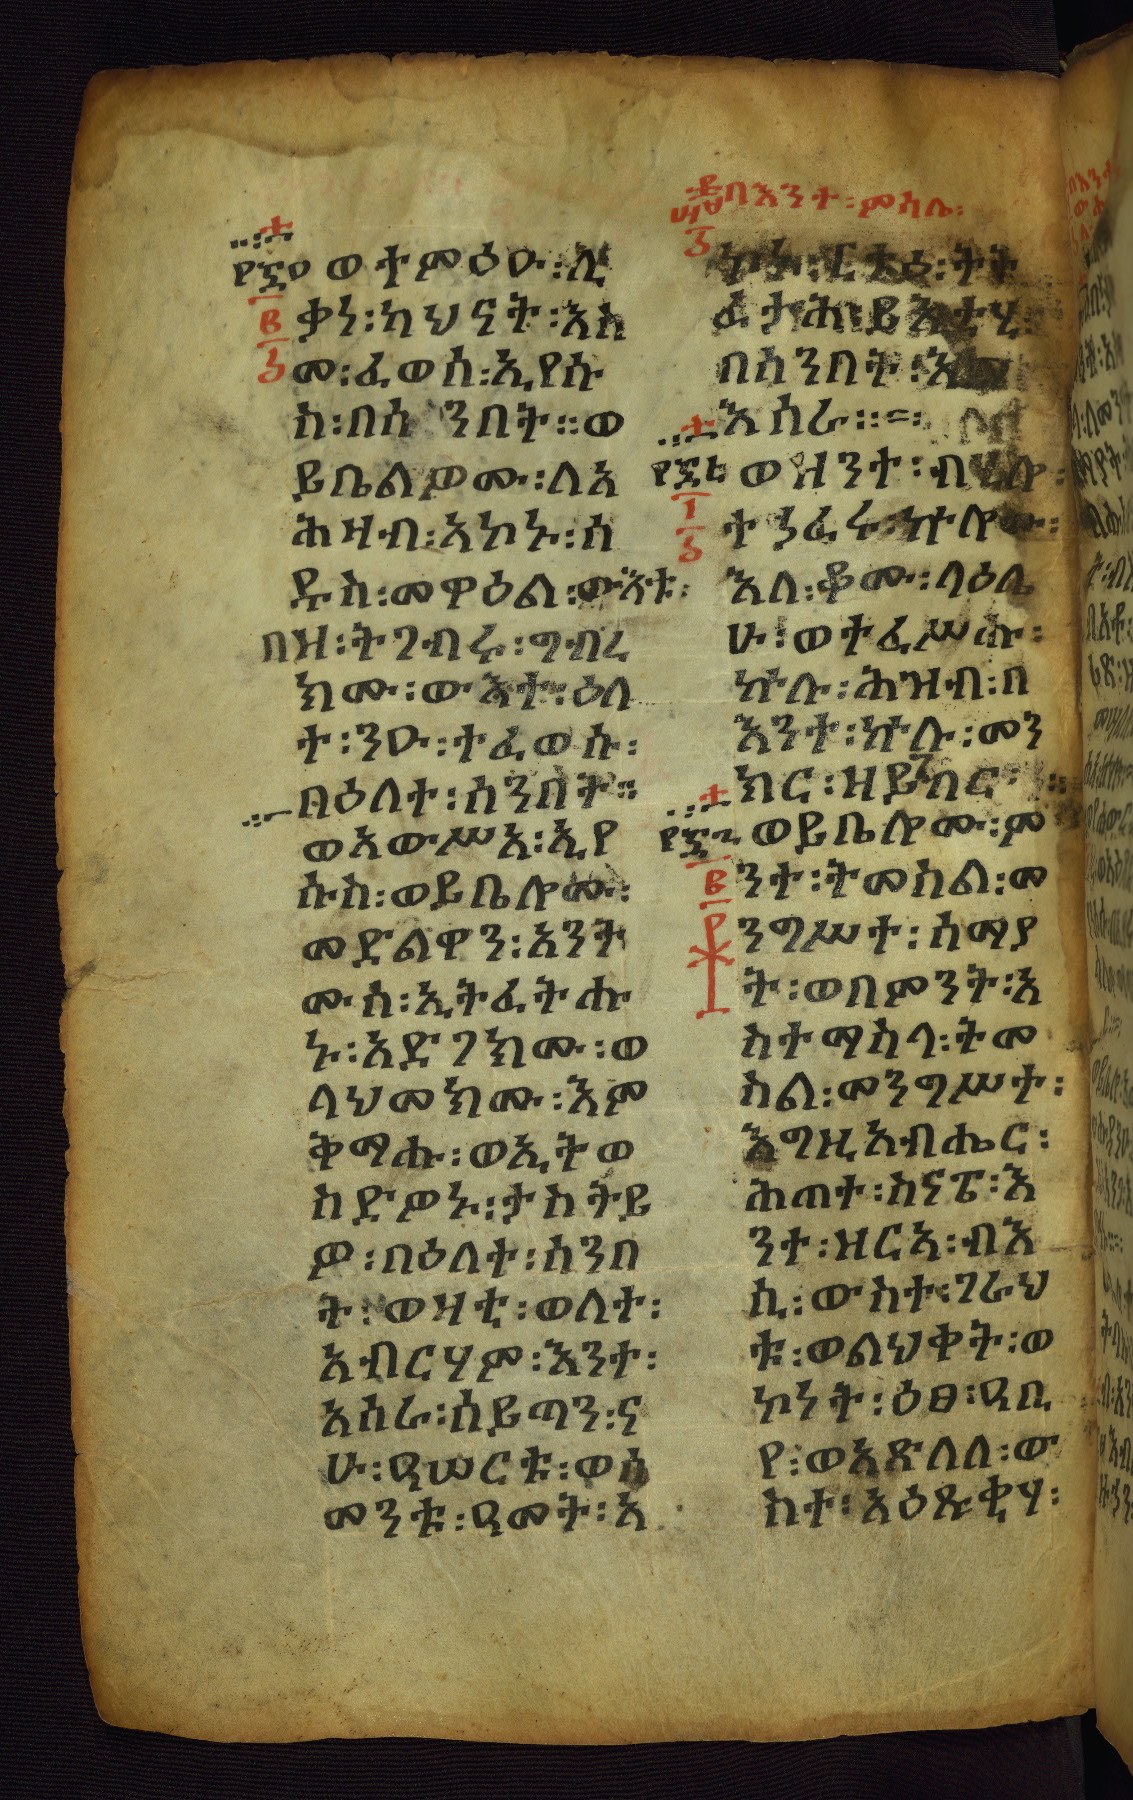 ወተምዕዑ፡ሊ
ቃነ፡ካህናት፡እስ
መ፡ፈወሰ፡ኢየሱ
ስ፡በሰንበት፡፡ወ
ይቤልዎሙ፡ለአ
ሕዛብ፡አኮኑ፡ሰ
ዱስ፡መዋዕል፡ውእቱ፡
በዝ፡ትገብሩ፡ግብረ
ክሙ፡ውእተ፡ዕለ
ተ፡ንዑ፡ተፈወሱ፡
በዕለተ፡ሰንበት፡፡
ወአውሥአ፡ኢየ
ሱስ፡ወይቤሎሙ፡
መድልዋን፡አንት
ሙሰ፡ኢትፈትሑ
ኑ፡አድገክሙ፡ወ
ላህመክሙ፡እም
ቅማሑ፡ወኢትወ
ስድዎኑ፡ታስትይ
ዎ፡በዕለተ፡ሰንበ
ት፡ወዛቲ፡ወለተ፡
አብርሃም፡እንተ፡
አሰራ፡ሰይጣን፡ና
ሁ፡ዓሠርቱ፡ወሰ
መንቱ፡ዓመት፡አ
በእንተ፡ምሳሌ፡
ትት
ፈታሕ፡ይእቲሃ፡
በሰንበት፡
እሰራ፡፡
ወዝንተ፡ብሂሎ፡
ተኃፈሩ፡ኵሎሙ፡
እለ፡ቆሙ፡ላዕሌ
ሁ፡ወተፈሥሑ፡
ኵሉ፡ሕዝብ፡በ
እንተ፡ኵሉ፡መን
ክር፡ዝይገብር፡፡
ወይቤሎሙ፡ም
ንተ፡ትመስል፡መ
ንግሥተ፡ሰማያ
ት፡ወበምንት፡አ
ስተማስላ፡ትመ
ስል፡መንግሥተ፡
እግዚአብሔር፡
ሕጠተ፡ስናፔ፡እ
ንተ፡ዝርአ፡ብእ
ሲ፡ውስተ፡ገራህ
ቱ፡ወልህቀት፡ወ
ኮነት፡ዕፀ፡ዓቢ
የ፡ወአጽለለ፡ው
ስተ፡አዕጹቂሃ፡